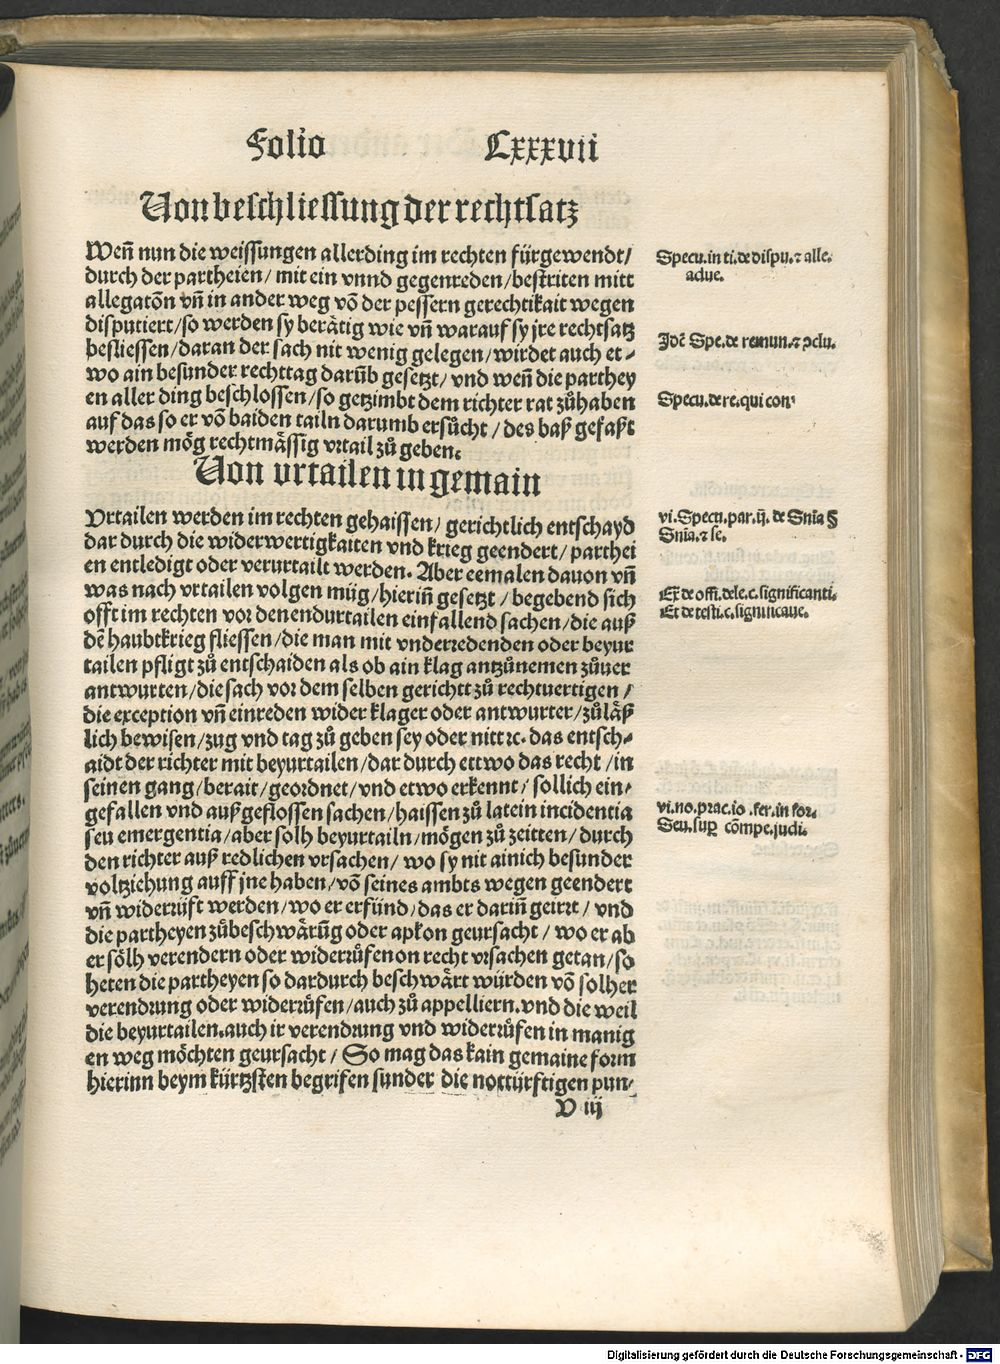 Folio LXXXVII
Von beschliessung der rechtsatz
Wen̄ nun die weissungen allerding im rechten fürgewendt/
durch der partheien/ mit ein vnnd gegenreden/ bestriten mitt
allegatōn vn̄ in ander weg vō der pessern gerechtikait wegen
disputiert/ so werden sy berätig wie vn̄ warauf sy jre rechtsatz
besliessen/ daran der sach nit wenig gelegen/ wirdet auch et-
wo ain besunder rechttag darūb gesetzt/ vnd wen̄ die parthey
en aller ding beschlossen/ so getzimbt dem richter rat zůhaben
auf das so er vō baiden tailn darumb ersůcht/ des baß gefaßt
werden mög rechtmässig vrtail zů geben.
Von vrtailen in gemain
Vrtailen werden im rechten gehaissen/ gerichtlich entschayd
dar durch die widerwertigkaiten vnd krieg geendert/ parthei
en entledigt oder verurtailt werden. Aber eemalen dauon vn̄
was nach vrtailen volgen müg/ hierin̄ gesetzt/ begebend sich
offt im rechten vor den endurtailen einfallend sachen/ die auß
dē haubtkrieg fliessen/ die man mit vnderredenden oder beyur
tailen pfligt zů entschaiden als ob ain klag antzůnemen zůuer
antwurten/ die sach vor dem selben gerichtt zů rechtuertigen/
die exception vn̄ einreden wider klager oder antwurter/ zůläß
lich bewisen/ zug vnd tag zů geben sey oder nitt ꝛc. das entsch-
aidt der richter mit beyurtailen/ dar durch ettwo das recht/ in
seinen gang/ berait/ geordnet/ vnd etwo erkennt/ sollich ein-
gefallen vnd außgeflossen sachen/ haissen zů latein incidentia
seu emergentia/ aber solh beyurtailn/ mögen zů zeitten/ durch
den richter auß redlichen vrsachen/ wo sy nit ainich besunder
voltziehung auff jne haben/ vō seines ambts wegen geendert
vn̄ widerrüft werden/ wo er erfünd/ das er darin̄ geirrt/ vnd
die partheyen zůbeschwärūg oder apłon geursacht/ wo er ab
er sölh verendern oder widerrůfen on recht vrsachen getan/ so
heten die partheyen so dardurch beschwärt würden vō solher
verendrung oder widerrůfen/ auch zů appelliern. vnd die weil
die beyurtailen. auch ir verendrung vnd widerrůfen in manig
en weg möchten geursacht/ So mag das kain gemaine form
hierinn beym kürtzsten begrifen sunder die nottürftigen pun-
V iij
Specu. in ti. de dispu. ⁊ alle.
adue.
Jdē Spe. de renun. ⁊ ꝯclu.
Specu. de re. qui con
vi. Specu. par. ij. de Snīa §
Snīa. ⁊ se.
Ex̄ de offi. dele. c. significanti.
Et de testi. c. significaue.
vi. no. prac. io. fer. in for.
Seu. suꝑ cōmpe. judi.
Digitalisierung gefördert durch die Deutsche Forschungsgemeinschaft - DFG